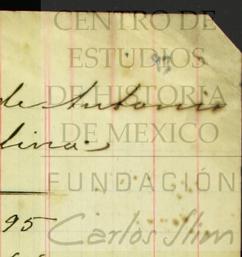 CENTRO DE
ESTUDIOS
DE HISTORIA
DE MEXICO
FUNDACIÓN
Carlos Slim
de Antonio
lina
95